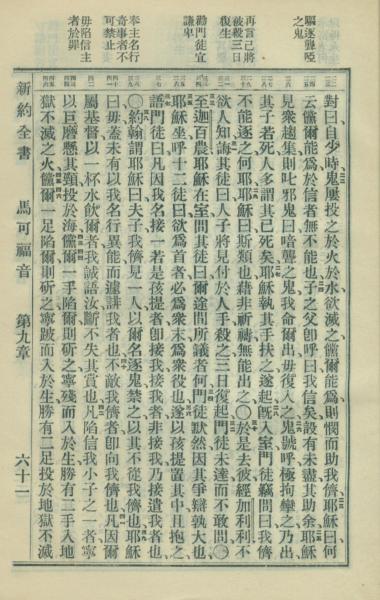 驅逐聾啞
之鬼
再言己將
被殺三日
復生
勸門徒宜
謙卑
奉主名行
奇事者不
可禁止
毋陷信主
者於罪
對曰自少時鬼屢投之於火於水欲滅之儻爾能爲則憫而助我儕耶穌曰何
云儻爾能爲於信者無不能也子之父卽呼曰我信矣設有未盡其助余耶穌
見衆趨集則叱邪鬼曰喑聾之鬼我命爾出毋復入之鬼號呼極拘攣之乃出
其子若死人多謂其已死矣耶穌執其手扶之遂起旣入室門徒竊問曰我儕
不能逐之何耶耶穌曰斯類也藉非祈禱無能出之〇於是去彼經加利利不
欲人知誨其徒曰人子將見付於人手殺之三日復起門徒未達而不敢問〇
至迦百農耶穌在室問其徒曰爾途間所議者何門徒默然因其爭辯孰大也
耶穌坐呼十二徒曰欲爲首者必爲衆末爲衆役也遂以孩提置其中且抱之
語門徒曰凡因我名接一若是孩提者卽接我接我者非接我乃接遣我者也
〇約翰謂耶穌曰夫子我儕見一人以爾名逐鬼禁之以其不從我儕也耶穌
曰毋蓋未有以我名行異能而遽誹我者也不敵我儕者卽向我儕也凡因爾
屬基督以一杯水飲爾者我誠語汝斷不失其賞也凡陷信我小子之一者寧
以巨磨懸其頸投於海儻爾一手陷爾則斫之寧殘而入於生勝有二手入地
獄不滅之火儻爾一足陷爾則斫之寧跛而入於生勝有二足投於地獄不滅
新約全書 馬可福音 第九章 六十一